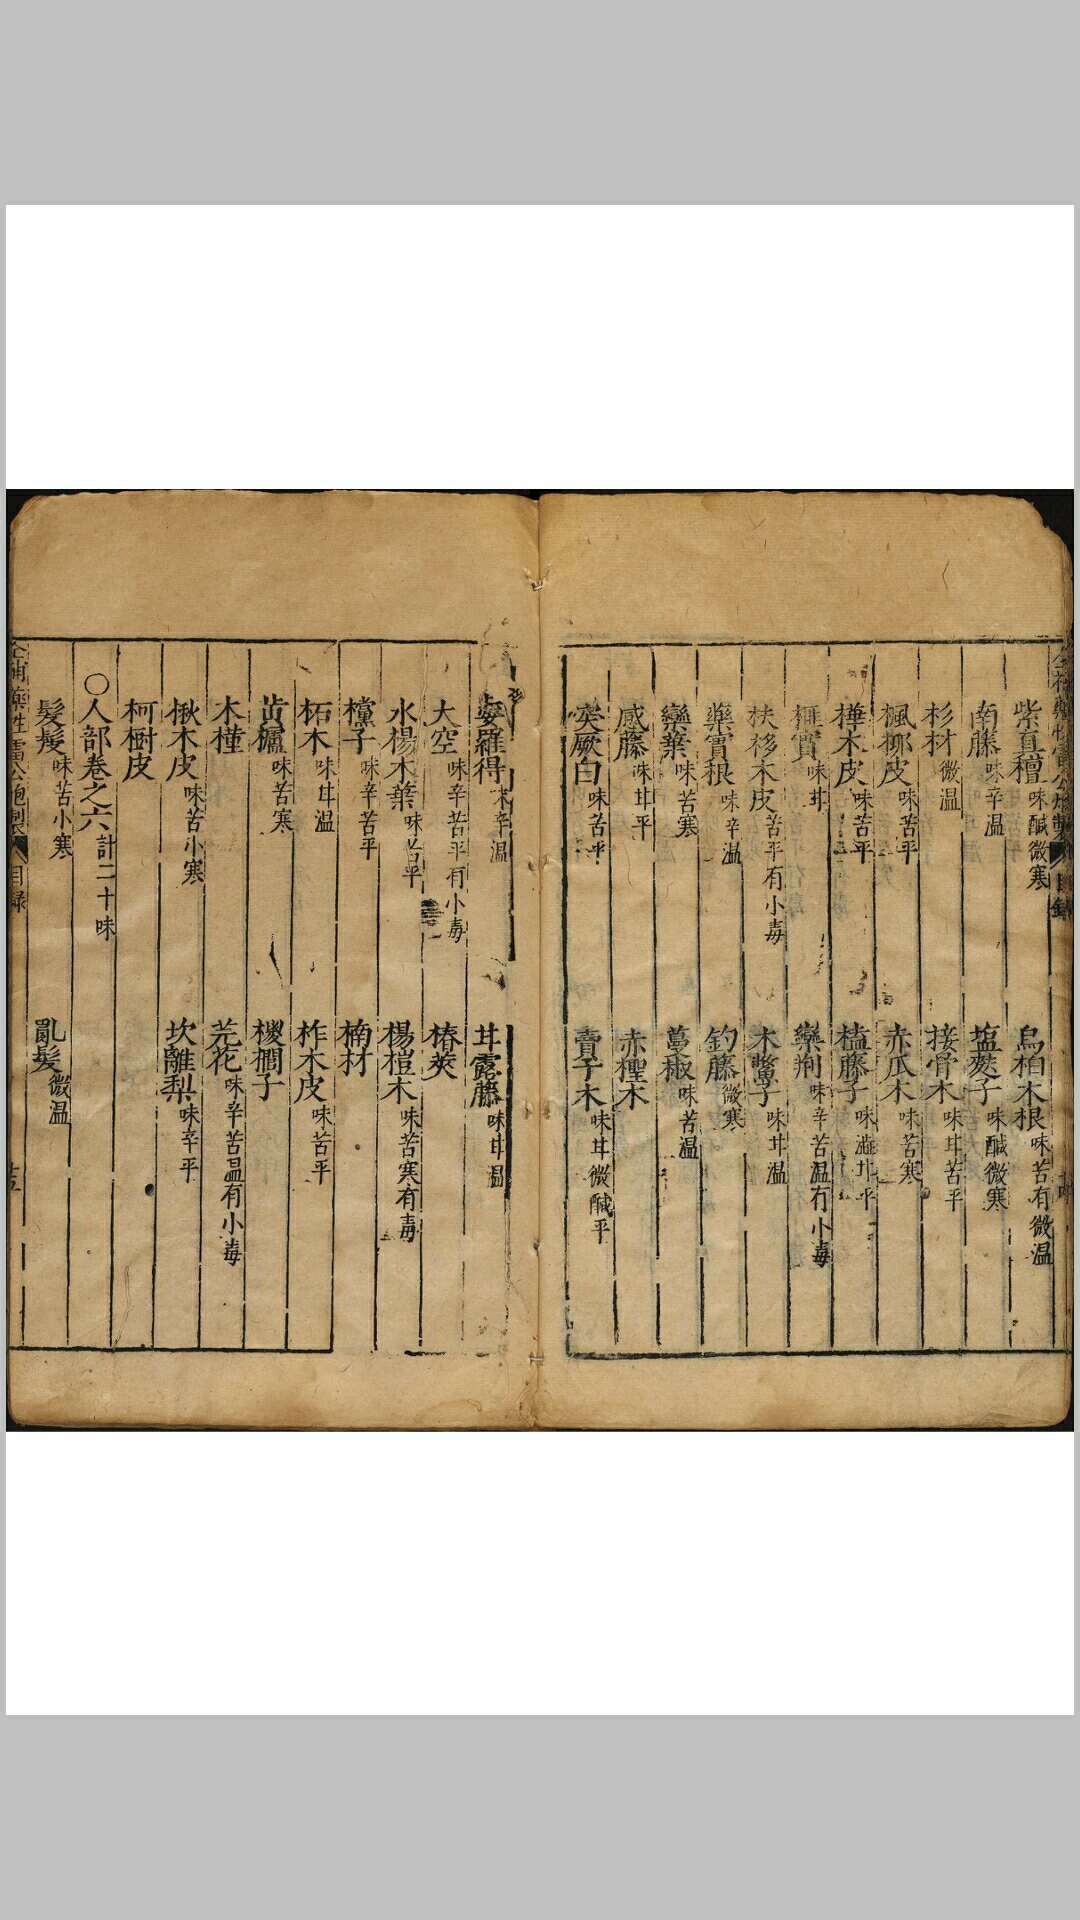 紫真檀味醎微寒 烏桕木根味苦有微温
南藤味辛温 塩麩子味醎微寒
杉材微温 接骨木味甘苦平
楓桺皮味苦平 赤瓜木味苦寒
樺木皮味苦平 榼藤子味澁甘平
榧實味甘 欒荆味辛苦温有小毒
扶栘木皮苦平有小毒 木鱉子味甘温
藥實根味辛温 釣藤微寒
欒華味苦寒 蔓椒味苦温
感藤味甘平 赤檉木
突厥白味苦平 賣子木味甘微醎平
婆羅得味辛温 甘露藤味甘温
大空味辛苦平有小毒 椿莢
水楊木葉味苦平 楊櫨木味苦寒有毒
欓子味辛苦平 楠材
柘木味甘温 柞木皮味苦平
黄櫨味苦寒 椶櫚子
木槿 芫花味辛苦温有小毒
楸木皮味苦小寒 坎離梨味辛平
柯樹皮
○人部卷之六計二十味
髮髲味苦小寒 亂髮微温
全補藥性雷公炮製 目録